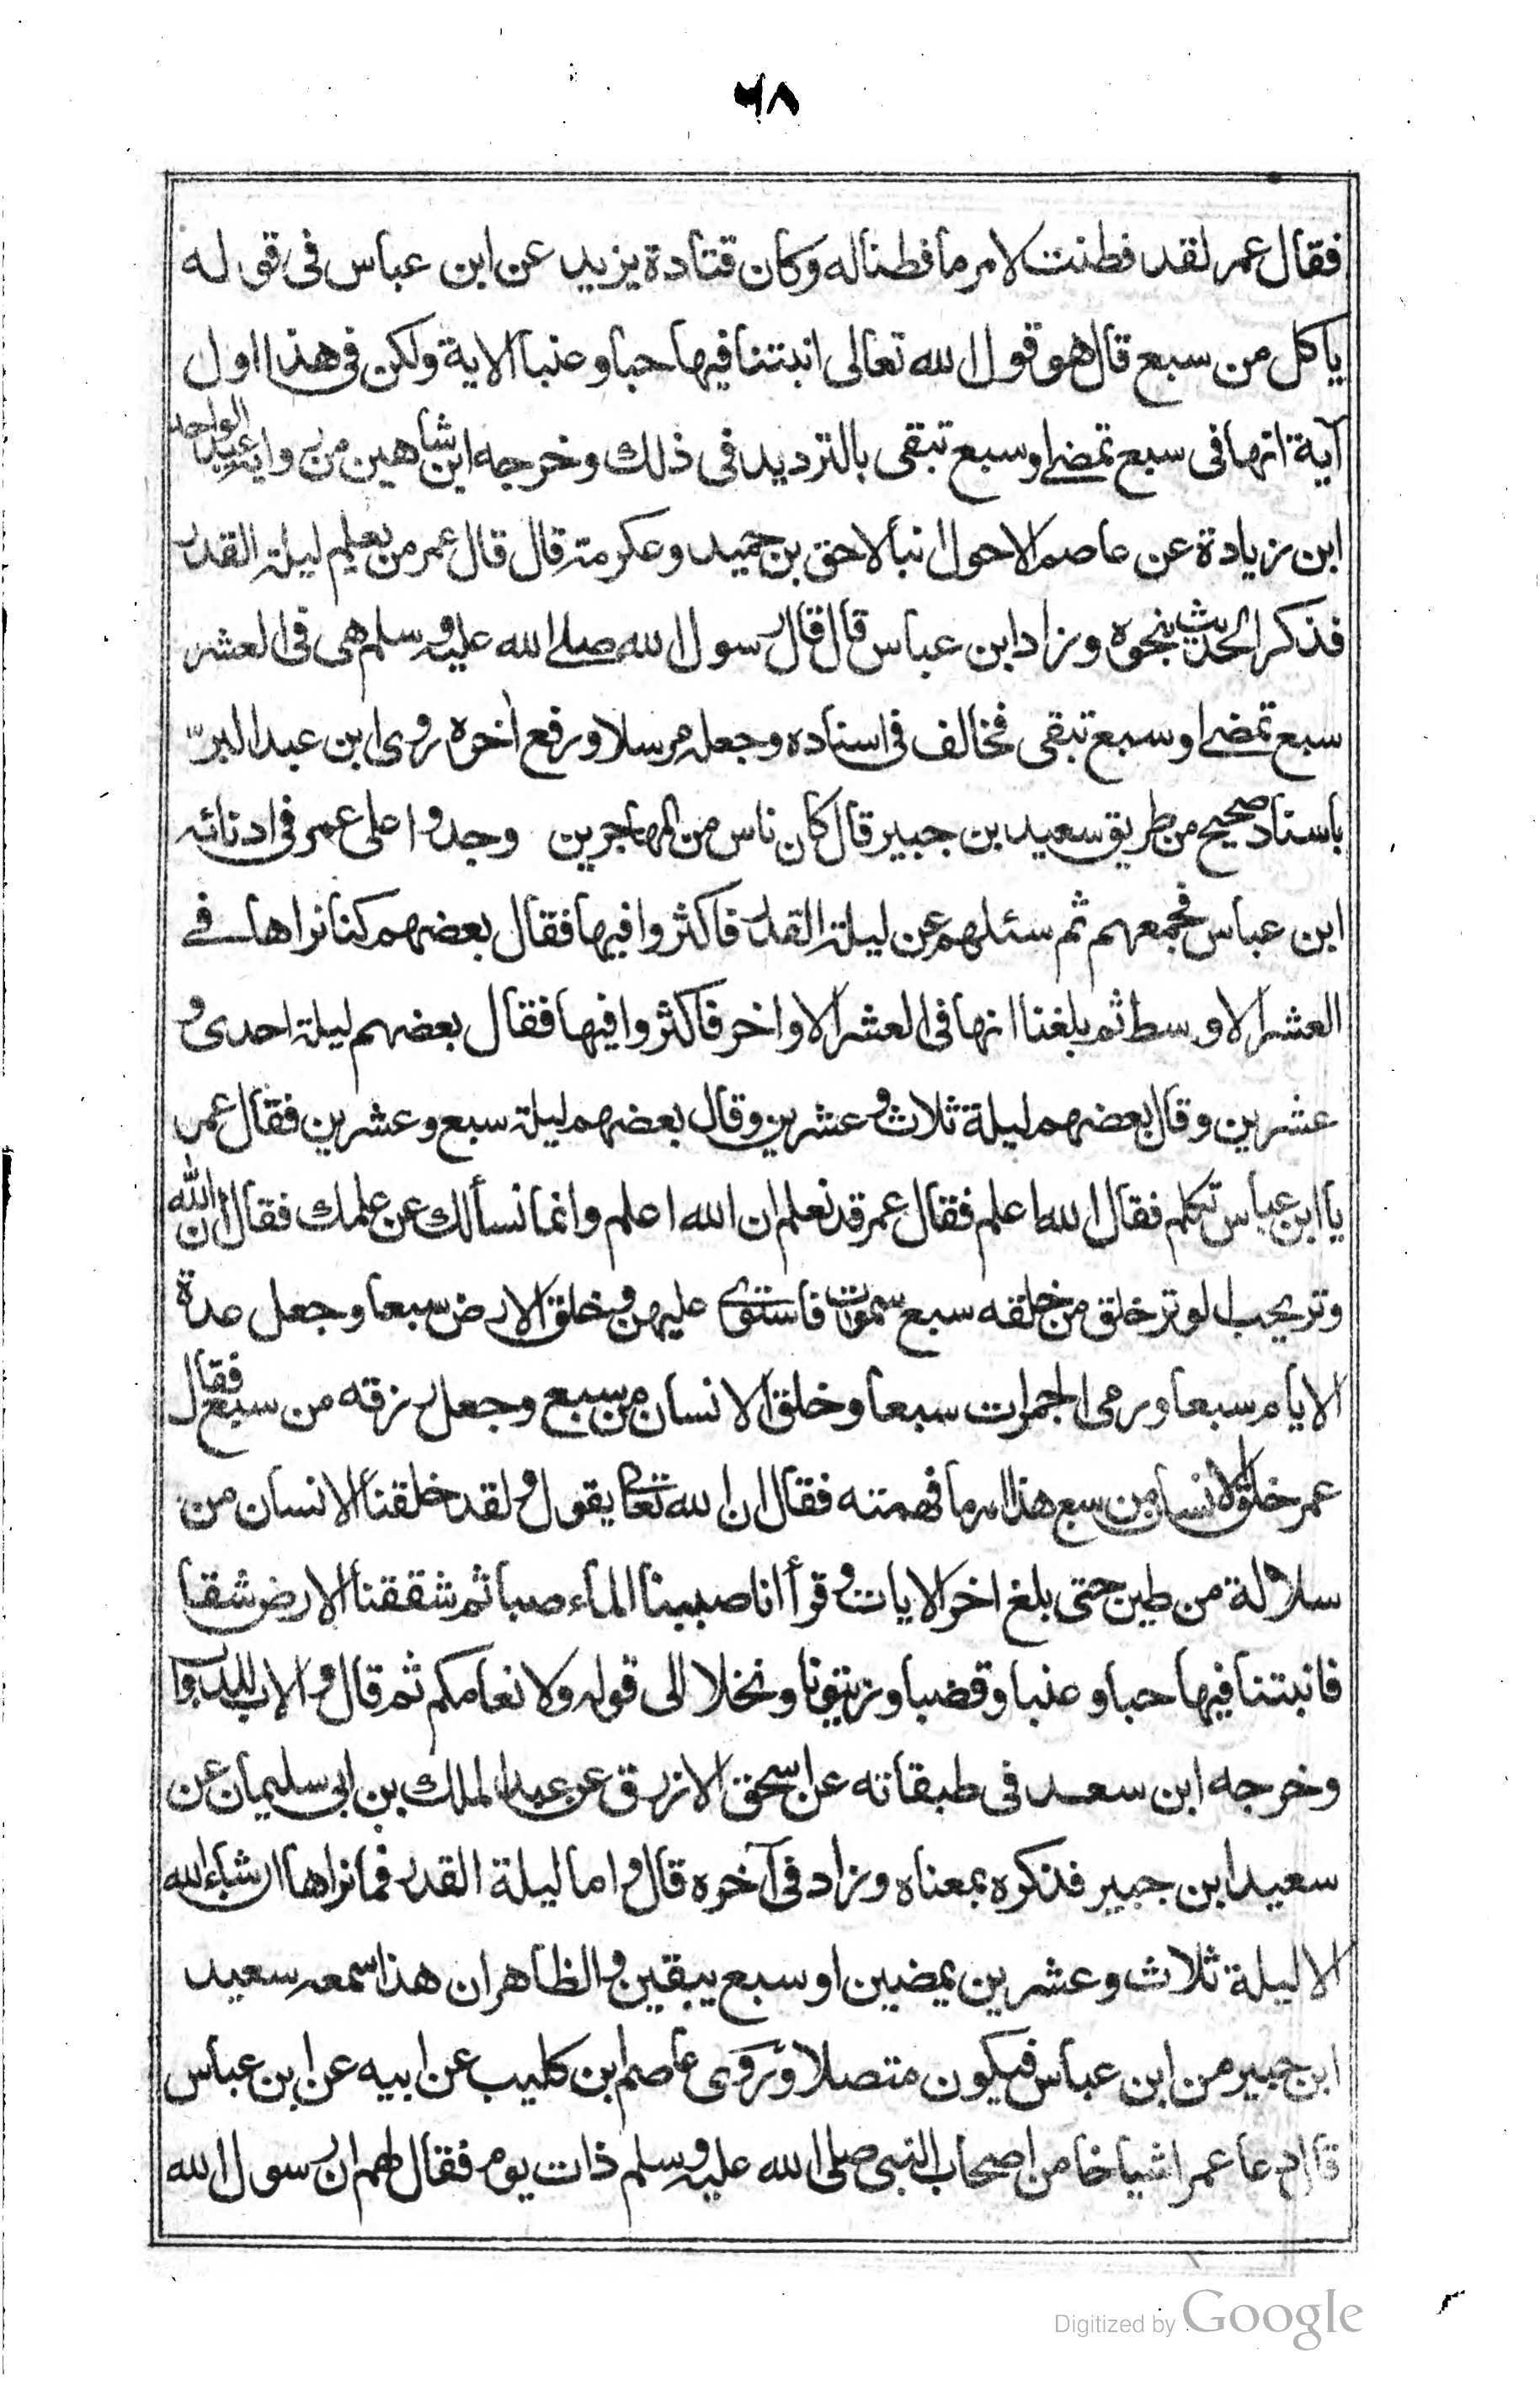 ٦٨
فقال عمر لقد فطنت لامر ما فطنا له وكان قتادة يزيد عن ابن عباس فى قوله
يأكل من سبع قال هو قول الله تعالى انبتنا فيها حبا وعنبا الاية ولكن فى هذا اول
آية انها فى سبع تمضى او سبع تبقى بالترديد فى ذلك وخرجه ابن شاهين من رواية عبد الواحد
ابن زيادة عن عاصم الاحول انبأ لاحق بن حميد وعكرمة قال قال عمر من يعلم ليلة القدر
فذكر الحديث بنحوه وزاد ابن عباس قال قال رسول الله صلى الله عليه وسلم هى فى العشر
سبع تمضى او سبع تبقى فخالف فى اسناده وجعله مرسلا ورفع أخره روى ابن عبد البرّ
باسناد صحيح من طريق سعيد بن جبير قال كان ناس من المهاجرين وجدوا على عمر فى ادنائه
ابن عباس فجمعهم ثم سئلهم عن ليلة القدر فاكثروا فيها فقال بعضهم كنا نراها فى
العشر الاوسط ثم بلغنا انها فى العشر الاواخر فاكثروا فيها فقال بعضهم ليلة احدى و
عشرين وقال بعضهم ليلة ثلاث وعشرين وقال بعضهم ليلة سبع وعشرين فقال عمر
يا ابن عباس تكلم فقال الله اعلم فقال عمر قد نعلم ان الله اعلم وانما نسألك عن علمك فقال ان الله
وتر يحب الوتر خلق من خلقه سبع سموات فاستوى عليهن وخلق الارض سبعا وجعل عدة
الايام سبعا ورمى الجمرات سبعا وخلق الانسان من سبع وجعل رزقه من سبع فقال
عمر خلق الانسان من سبع هذا امر ما فهمته فقال ان الله تعالى يقول ولقد خلقنا الانسان من
سلالة من طين حتى بلغ اخر الايات وقرأ انا صببنا الماء صبا ثم شققنا الارض شقا
فانبتنا فيها حبا وعنبا وقضبا وزيتونا ونخلا الى قوله ولانعامكم ثم قال والاب للدواب
وخرجه ابن سعد فى طبقاته عن اسحق الازرق عن عبد الملك بن ابى سليمان عن
سعيد ابن جبير فذكره بمعناه وزاد فى آخره قال واما ليلة القدر فما نراها ان شاء الله
الا ليلة ثلاث وعشرين يمضين او سبع يبقين والظاهر ان هذا سمعه سعيد
ابن جبير من ابن عباس فيكون متصلا وروى عاصم ابن كليب عن ابيه عن ابن عباس
قال دعا عمر اشياخا من اصحاب النبى صلى الله عليه وسلم ذات يوم فقال لهم ان رسول الله
Digitized by Google